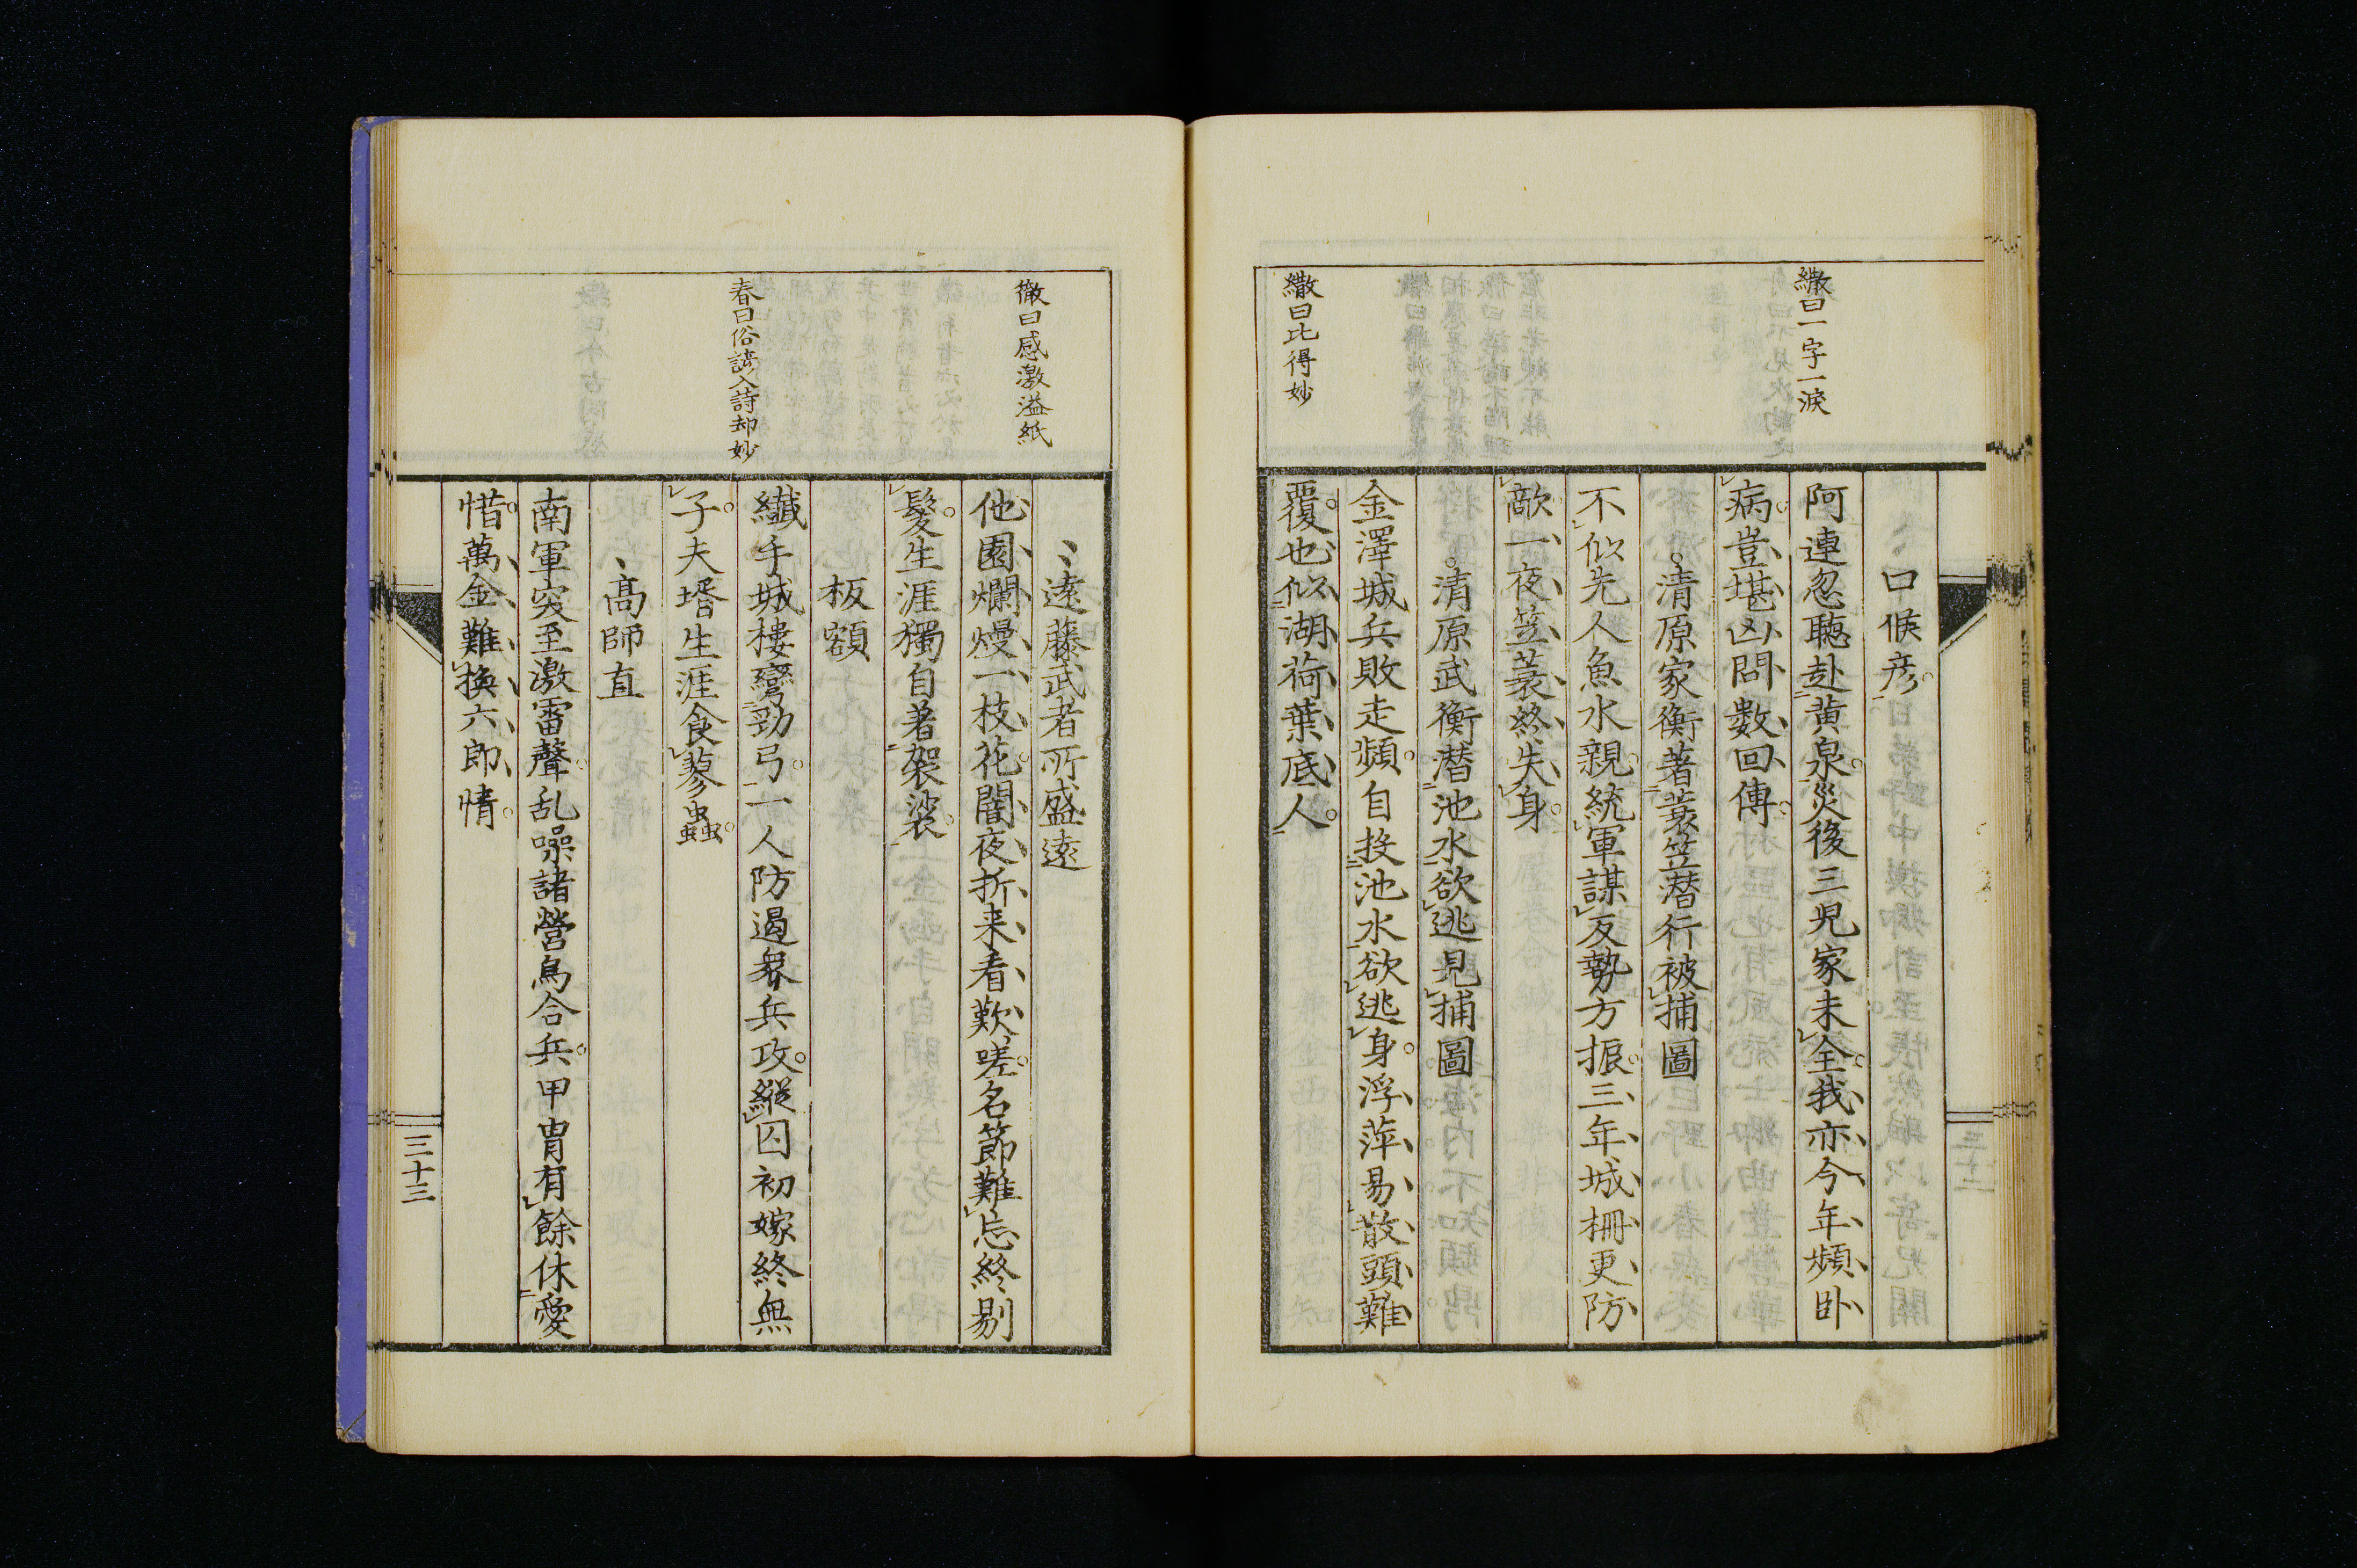 繖曰一字一淚
繖曰比得妙
口候彦
阿連忽聴赴黄泉災後三児家未全我亦今年頻臥
病豈堪凶問数回傳
清原家衡著蓑笠潜行被捕圖
不似先人魚水親統軍謀反勢方振三年城柵更防
敵一夜笠蓑終失身
清原武衡潜池水欲逃見捕圖
金澤城兵敗走頻自投池水欲逃身浮萍易散頭難
覆也似湖荷葉底人
徹曰感激溢紙
春曰俗諺入詩却妙
遠藤武者所盛遠
他園爛熳一枝花闇夜折来看歎嗟名節難忘終剔
髪生涯獨自著袈裟
板額
纎手城樓彎勁弓一人防遏衆兵攻縦囚初嫁終無
子夫壻生涯食蓼蟲
高師直
南軍突至激雷聲乱噪諸營烏合兵甲冑有餘休愛
惜萬金難換六郎情
三十三